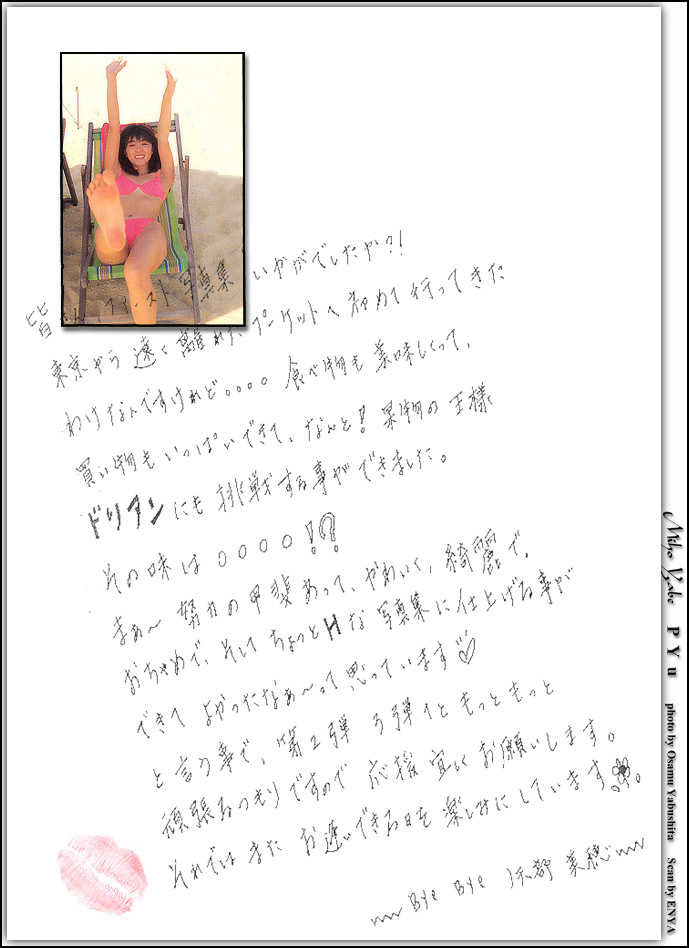 皆さん、ファースト写真集 いかがでしたか?!
東京から遠く離れた、プーケットへ初めて行ってきた
わけなんですけれど。。。。食べ物も美味しくって、
買い物もいっぱいできて、なんと!果物の王様
ドリアンにも挑戦する事ができました。
その味は○○○○!?
まぁ〜努力の甲斐あって、かわいく、綺麗で、
おちゃめで、そしてちょっとHな写真集に仕上げる事が
できてよかったなぁ〜って思っています♡
と言う事で、第2弾 3弾ともっともっと
頑張るつもりですので応援宜しくお願いします。
それではまたお逢いできる日を楽しみにしています。
Bye Bye 矢部 美穂
Miho Yabe PYu photo by Osamu Yabushita Scan by ENYA